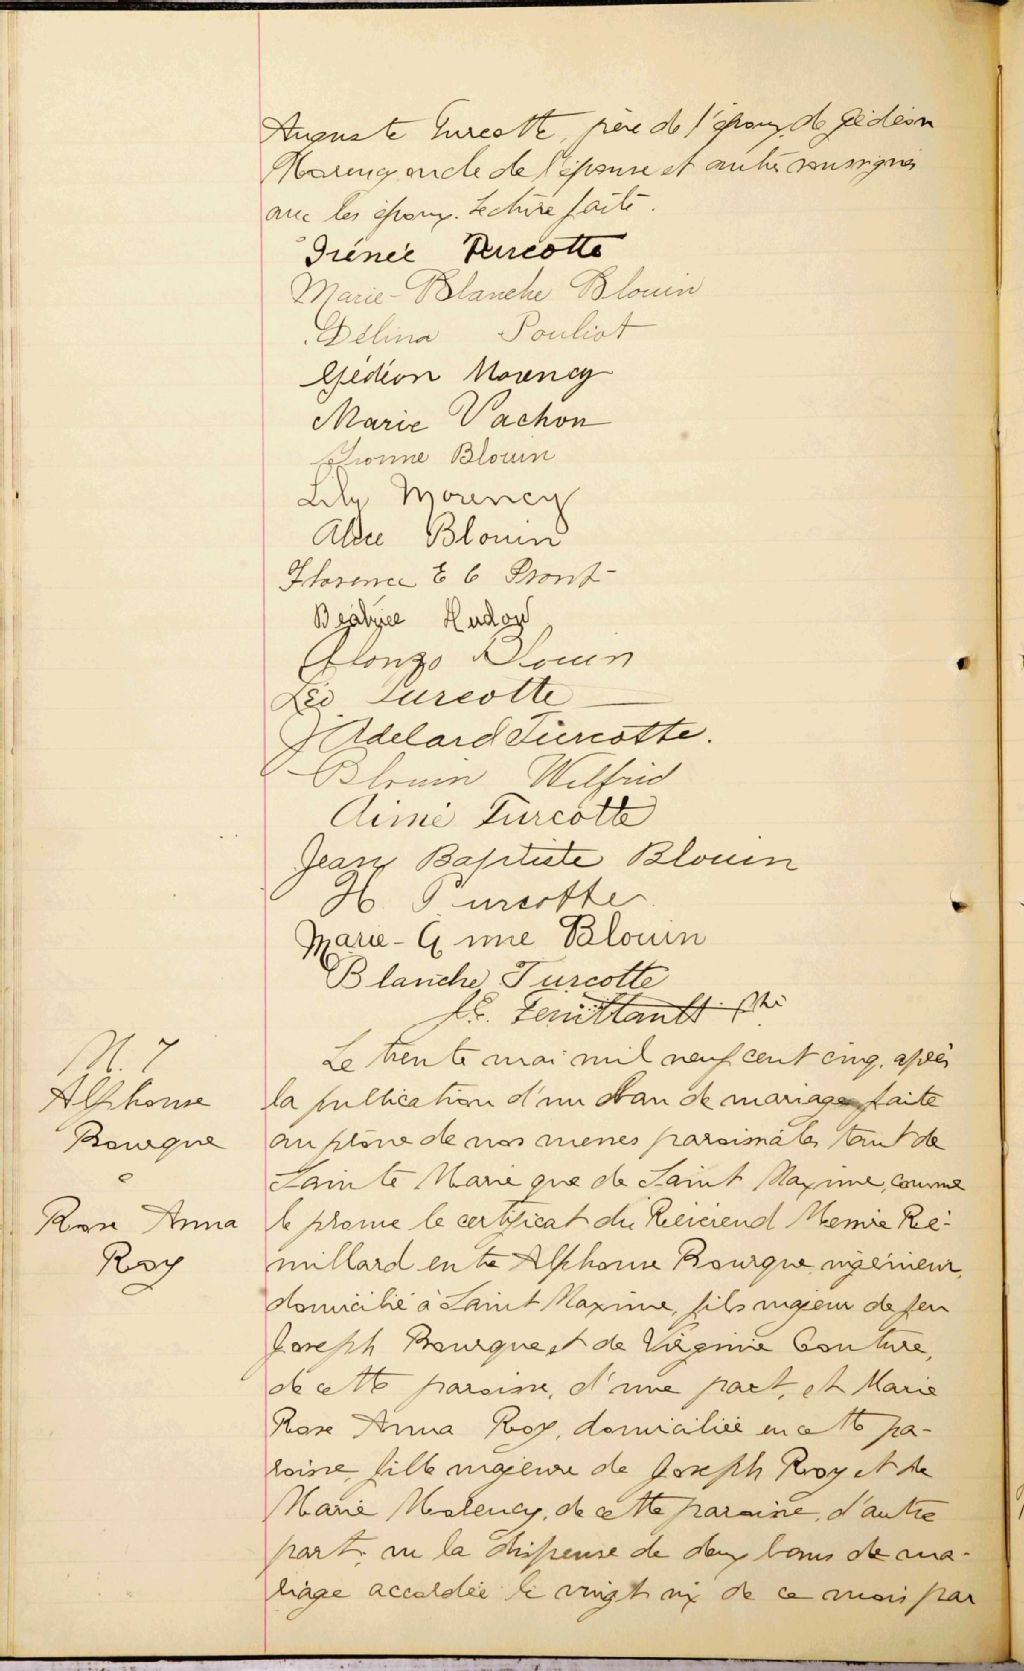 Auguste Turcotte, père de l'époux, de Gédéon
Morency oncle de l'épouse et autres soussignés
avec les époux. Lecture faite.
Irénée Turcotte
Marie-Blanche Blouin
Délina Pouliot
Gédéon Morency
Marie Vachon
Yvonne Blouin
Lily Morency
Alice Blouin
Florence E C Pront
Béatrice Hudon
Alonzo Blouin
Léo Turcotte
J Adelard Turcotte.
Blouin Wilfrid
Aimé Turcotte
Jean Baptiste Blouin
H Turcotte
Marie-Anne Blouin
Blanche Turcotte
J. E. Feuiltault Ptre
M. 7
Alphonse
Bourque
&
Rose Anna
Roy
Le trente mai mil neuf cent cinq, après
la publication d'un ban de mariage faite
au prône de nos messes paroissiales tant de
Sainte Marie que de Saint Maxime, comme
le prouve le certificat du Révérend Messire Ré-
millard entre Alphonse Bourque, ingénieur,
domicilié à Saint Maxime, fils majeur de feu
Joseph Bourque et de Virginie Couture,
de cette paroisse, d'une part, et Marie
Rose Anna Roy, domiciliée en cette pa-
roisse, fille majeure de Joseph Roy et de
Marie Morency, de cette paroisse, d'autre
part; vu la dispense de deux bans de ma-
riage accordée le vingt six de ce mois par